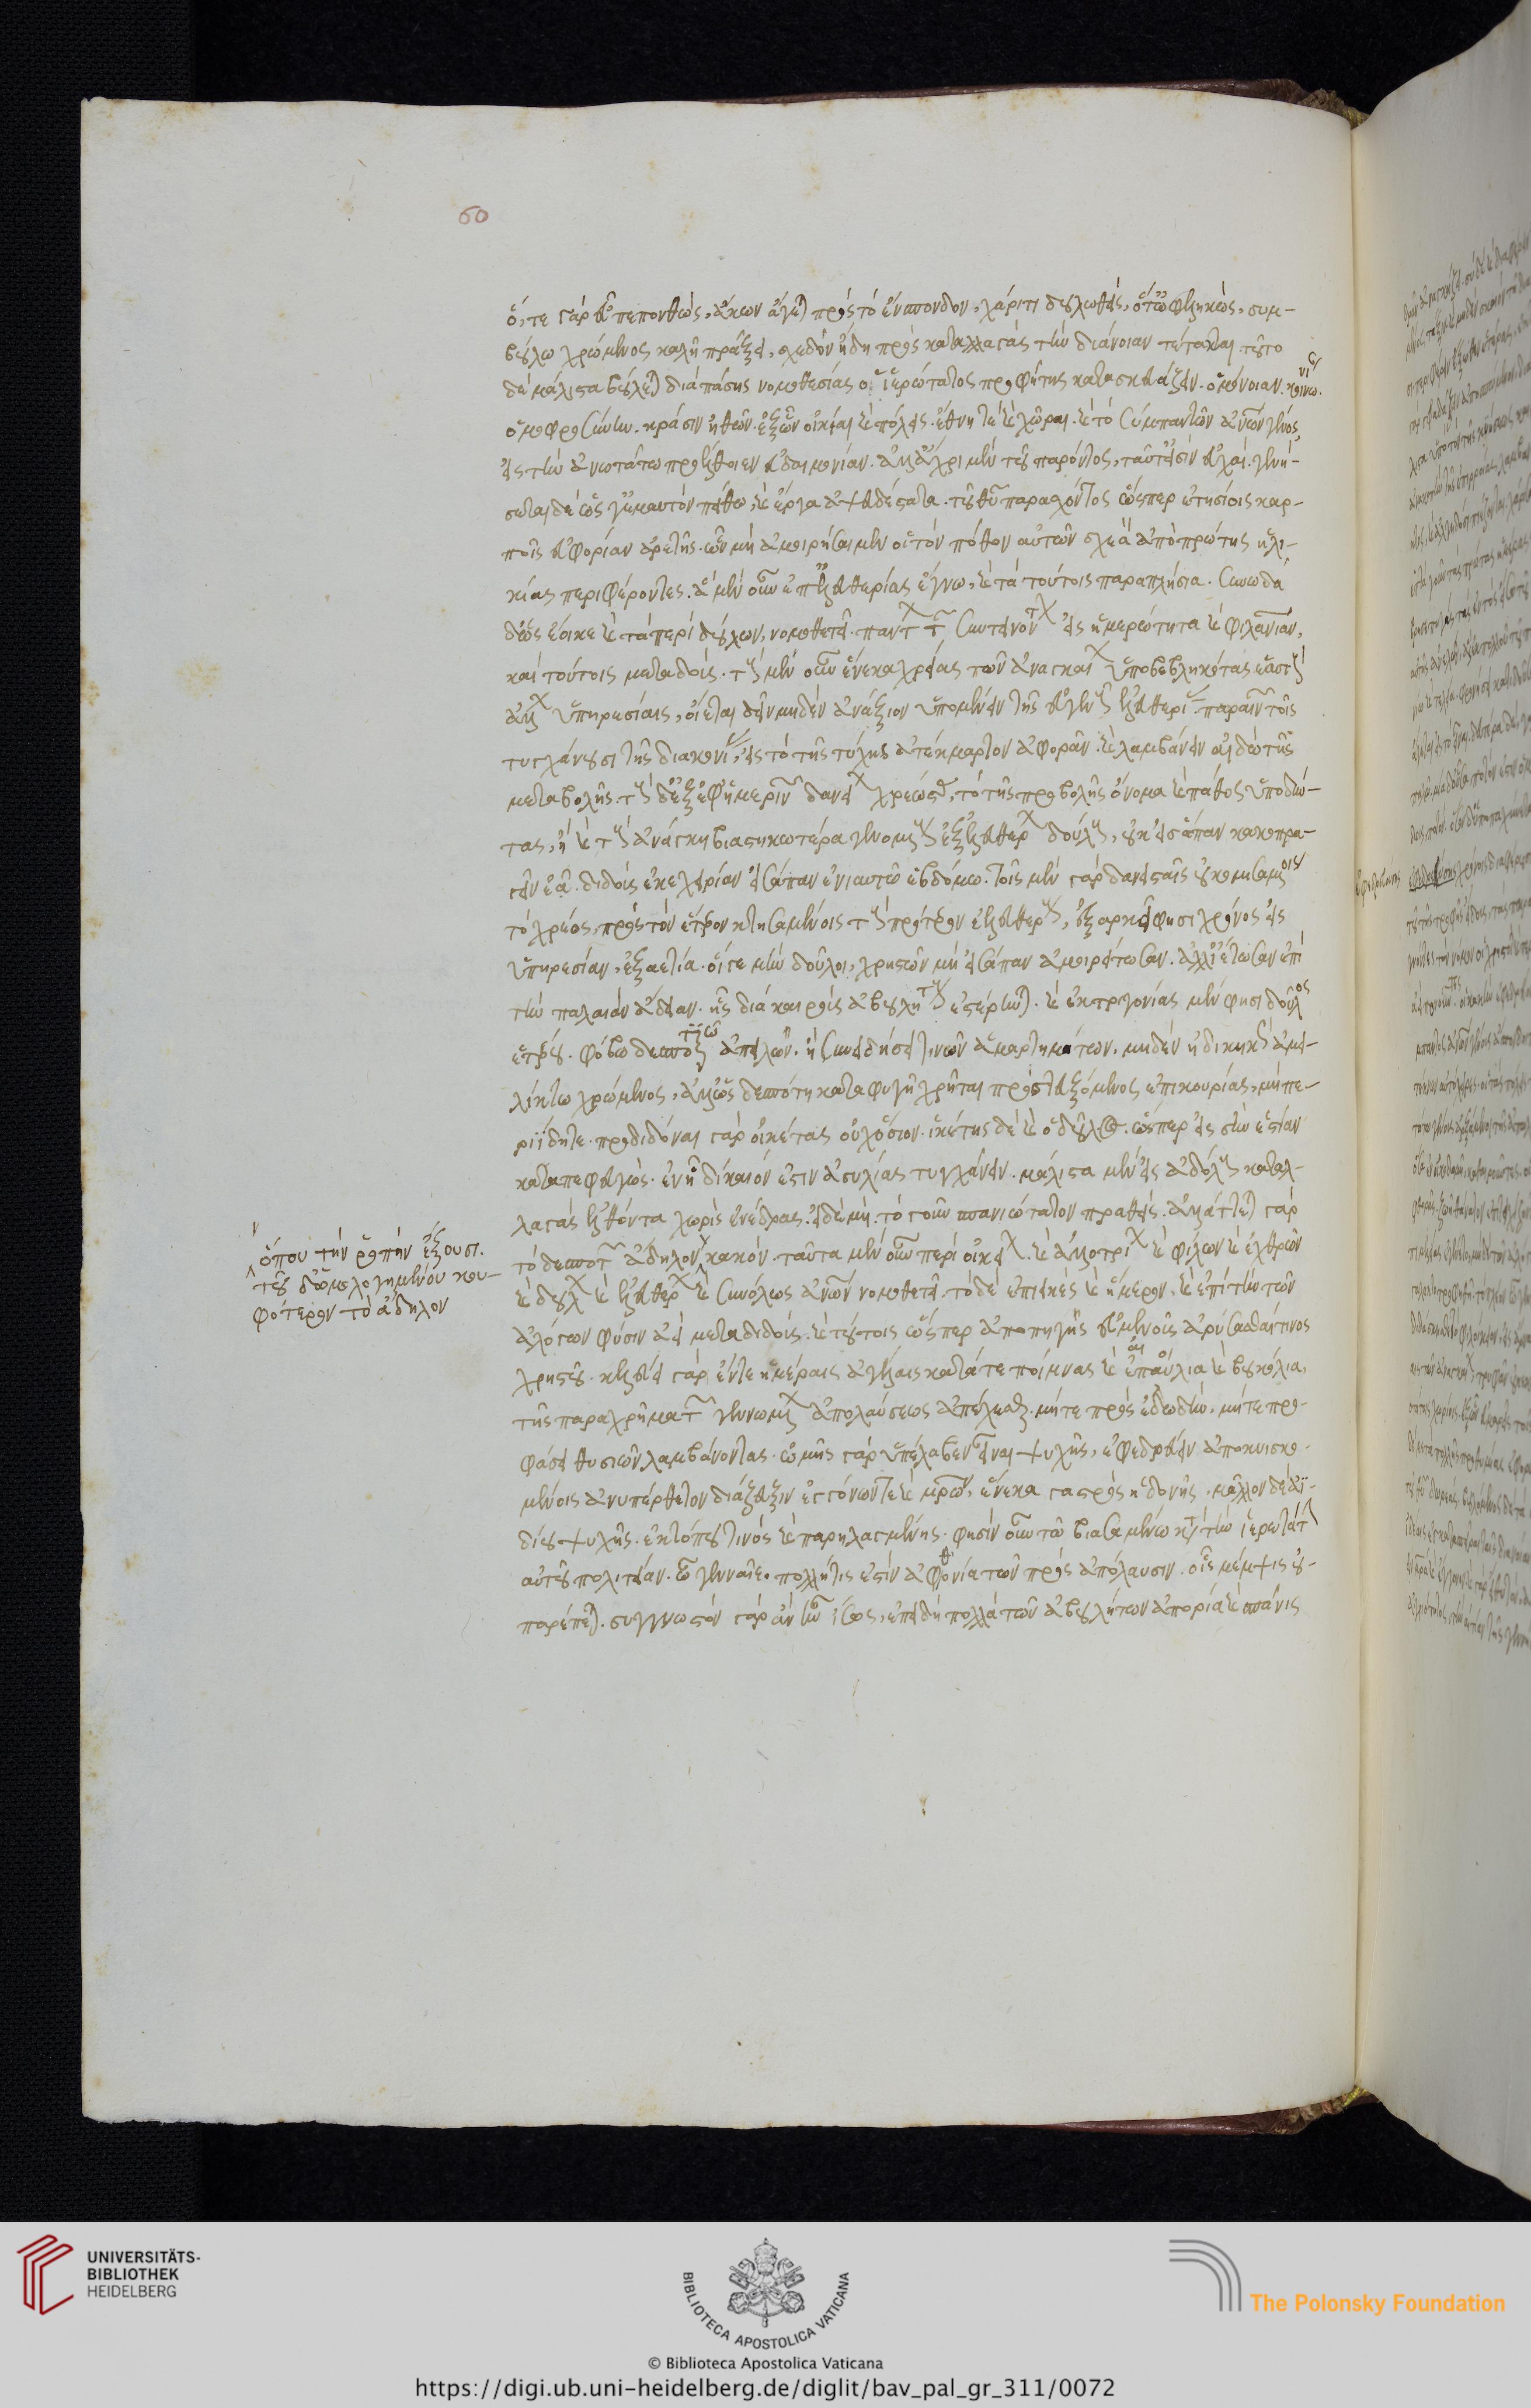 60
ὅ, τε γὰρ εὖ πεπονθὼς, ἄκων ἄγεται πρὸς τὸ ἔνσπονδον, χάριτι δουλωθεὶς, ὅτε ὠφεληκὼς, συμ-
βούλω χρώμενος καλῆ πράξει, σχεδὸν ἤδη πρὸς καταλλαγὰς τὴν διάνοιαν τέτακται τοῦτο
δὲ μάλιστα βούλεται διὰ πάσης νομοθεσίας ὁ ἱερώτατος προφήτης κατασκευάζειν. ὁμόνοιαν. κοινωνίαν.
ὁμοφροσύνην. κράσιν ἠθῶν. ἐξ ὧν οἰκίαι καὶ πόλεις. ἔθνη τὲ καὶ χῶραι. καὶ τὸ σύμπαν τῶν ἀνθρώπων γένος,
εἰς τὴν ἀνωτάτω προέλθοιεν εὐδαιμονίαν. ἀλλ' ἄχρι μὲν τοῦ παρόντος, ταῦτ' εἰσὶν εὐχαί. γενή-
σεται δὲ ὥς γ' ἐμαυτὸν πείθω, καὶ ἔργα ἀψευδέστατα. τοῦ θεοῦ παρασχόντος ὥσπερ ἐτησίοις καρ-
ποῖς εὐφορίαν ἀρετῆς. ὧν μὴ ἀμοιρήσαιμεν οἱ τὸν πόθον αὐτῶν σχεδὸν ἀπὸ πρώτης ἡλι-
κίας περιφέροντες. ἃ μὲν οὖν ἐπ' ἐλευθερίας ἔγνω, καὶ τὰ τούτοις παραπλήσια. συνωδὰ
δ' ὡς ἔοικε καὶ τὰ περὶ δούλων, νομοθετεῖ. πάντα τὰ συντείνοντα εἰς ἡμερότητα καὶ φιλανθρωπίαν,
καὶ τούτοις μεταδοὺς. τοὺς μὲν οὖν ἕνεκα χρείας τῶν ἀναγκαίων ὑποβεβληκότας ἑαυτοὺς
ἄλλων ὑπηρεσίαις, οἴεται δεῖν μηδὲν ἀνάξιον ὑπομένειν τῆς εὐγενοῦς ἐλευθερίας. παραινῶν τοῖς
τυγχάνουσι τῆς διακονίας, εἰς τὸ τῆς τύχης ἀτέκμαρτον ἀφορᾶν. καὶ λαμβάνειν αἰδῶ τῆς
μεταβολῆς. τοὺς δ' ἐξ ἐφημερινῶν δανείων χρεώστας, τὸ τῆς προβολῆς ὄνομα καὶ πάθος ὑποδύν-
τας, ἢ καὶ τοὺς ἀνάγκη βιαστικωτέρα γενομένους ἐξ ἐλευθέρων δούλους, οὐκ εἰς ἅπαν κακοπρα-
γεῖν ἐᾷ. διδοὺς ἐκεχειρίαν εἰσάπαν ἐνιαυτῶ ἑβδόμω. τοῖς μὲν γὰρ δανεισταῖς οὐ κομισαμένοις
τὸ χρέος, πρὸς τὸν ἕτερον κτησαμένοις τοὺς πρότερον ἐλευθέρους, ἐξαρκεῖ φησι χρόνος εἰς
ὑπηρεσίαν, ἑξαετία. οἵ γε μὴν δοῦλοι, χρηστῶν μὴ εἰσάπαν ἀμοιρείτωσαν. ἀλλ' ἴτωσαν ἐπὶ
τὴν παλαιὰν ἄδειαν. ἧς διὰ καιροὺς ἀβουλήτους ἐστέρηνται. καὶ ἐκ τριγονίας μὲν φησὶ δοῦλος
ἑτέρου. φόβω δεσποτῶν ἀπειλῶν. ἢ συνειδήσει τινῶν ἁμαρτημάτων. μηδὲν ἠδικηκὼς ἀμει-
λίκτω χρώμενος, ἄλλως δεσπότη καταφυγῆ χρῆται προστευξόμενος ἐπικουρίας, μὴ πε-
ριΐδητε. προδιδόναι γὰρ οἰκέτας οὐχ ὅσιον. ἱκέτης δὲ καὶ ὁ δοῦλος. ὥσπερ εἰς σὴν ἑστίαν
καταπεφευγὼς. ἐν ᾗ δίκαιόν ἐστιν ἀσυλίας τυγχάνειν. μάλιστα μὲν εἰς ἀδόλους καταλ-
λαγὰς ἐλθόντα χωρὶς ἐνέδρας. εἰ δὲ μὴ. τὸ γοῦν πανύστατον πραθεὶς. ἀλλάττεται γὰρ
τὸ δεσποτῶν ἄδηλον κακόν. ταῦτα μὲν οὖν περὶ οἰκείων. καὶ ἀλλοτρίων καὶ φίλων καὶ ἐχθρῶν
καὶ δούλων καὶ ἐλευθέρων καὶ συνόλως ἀνθρώπων νομοθετεῖ. τὸ δὲ ἐπιεικὲς καὶ ἥμερον, καὶ ἐπὶ τὴν τῶν
ἀλόγων φύσιν ἀεὶ μεταδιδοὺς. καὶ τούτοις ὥσπερ ἀπὸ πηγῆς εὐμενοῦς ἀρύσασθαί τινος
χρηστοῦ. κελεύει γὰρ ἐν τε ἡμέραις ἀγέλαις κατά τε ποίμνας καὶ ἐπαύλια καὶ βουκόλια,
τῆς παραχρῆμα τῶν γεννωμένων ἀπολαύσεως ἀπέχεσθαι. μήτε πρὸς ἐδωδὴν, μήτε προ-
φάσει θυσιῶν λαμβάνοντας. ὠμῆς γὰρ ὑπέλαβεν εἶναι ψυχῆς, ἐφεδρεύειν ἀποκυισκο-
μένοις ἀνυπέρθετον διάζευξιν ἐγγόνων τε καὶ μητέρων, ἕνεκα γαστρὸς ἡδονῆς. μᾶλλον δὲ ἀϊ-
δίου ψυχῆς. ἐκτόπου τινὸς καὶ παρηλλαγμένης. φησὶν οὖν τῶ βιασαμένω κατὰ τὴν ἱερωτάτην
αὐτοῦ πολιτείαν. ὦ γενναῖε. πολλή τίς ἐστὶν ἀφθονία τῶν πρὸς ἀπόλαυσιν. οἷς μέμψις οὐ-
παρέπεται. συγγνωστὸν γὰρ ἂν ἦν ἴσως, ἐπειδὴ πολλὰ τῶν ἀβουλήτων ἀπορία καὶ σπάνις
ὅπου τὴν ῥοπὴν ἐξουσι.
τοῦ δ' ὁμολογημένου κου-
φότερον τὸ ἄδηλον
UNIVERSITÄTS-
BIBLIOTHEK
HEIDELBERG
BIBLIOTECA APOSTOLICA VATICANA
The Polonsky Foundation
© Biblioteca Apostolica Vaticana
https://digi.ub.uni-heidelberg.de/diglit/bav_pal_gr_311/0072